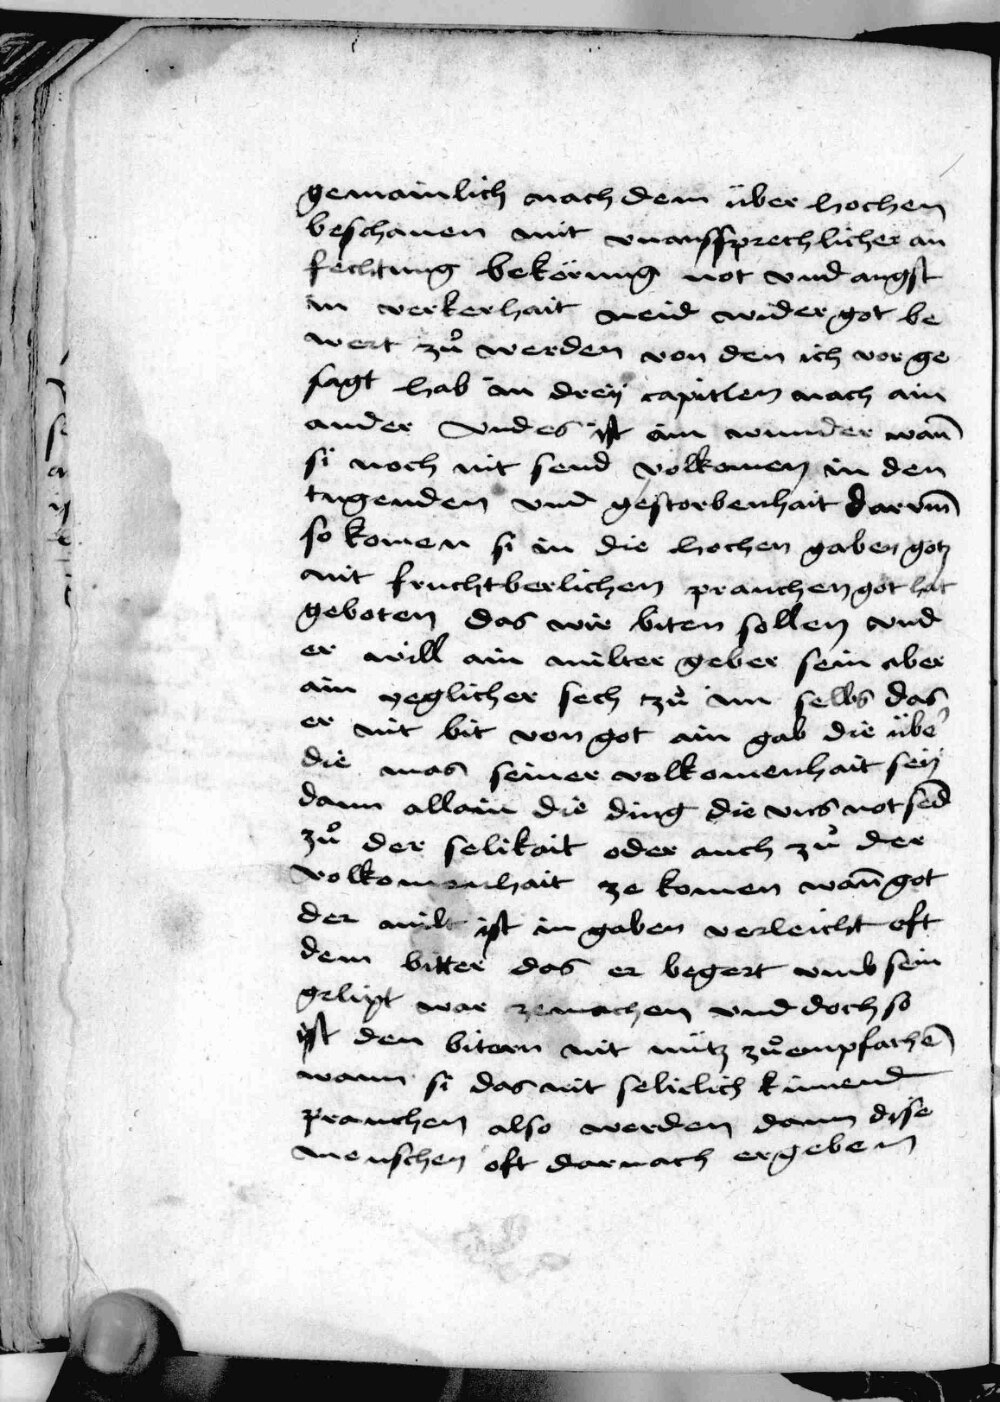 gemainlich nach dem über hochen
beschauen mit vnaussprechlicher an
fechtung bekörung not vnd angst
in verkerhait neid wider got be
wert zů werden von den ich vor ge
sagt hab in dreÿ capitlen nach ain
ander Vnd es ist ain wunder wañ
si noch nit send volkomen in den
tugenden vnd gestorbenhait darvm̄
so komen si in die hochen gaben gotz
mit fruchtberlichen prauchen got hat
geboten das wir biten sollen vnd
er will ain milter geber sein aber
ain yeglicher sech zů im selbs das
er nit bit von got ain gab die übe᷑
die mas seiner volkomenhait seÿ
dann allain die ding die vns not send
zů der selikait oder auch zů der
volkomenhait ze komen wañ got
der milt ist in gaben verleicht oft
dem bitter das er begert vmb sein
gelipt war zemachen vnd doch so
ist den bitern nit nütz zů empfachē
wann si das nit seliclich künend
prauchen also werden dann dise
menschen oft darnach ergeben